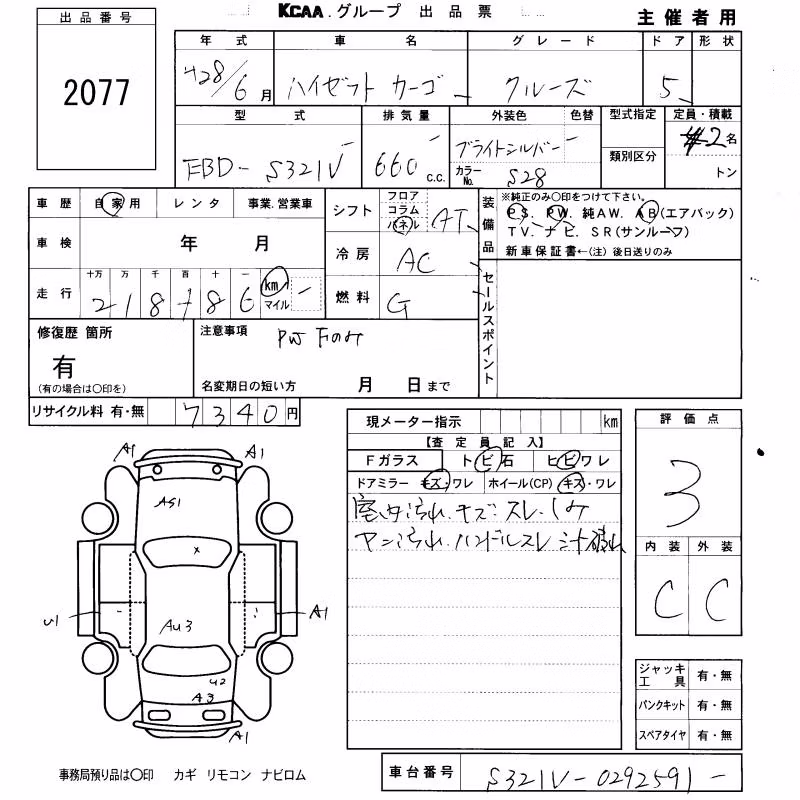 出品番号
2077
KCAA.グループ 出品票
主催者用
年式 車名 グレード ドア 形状
H28/6月 ハイゼット カーゴ クルーズ 5
型式 排気量 外装色 色替 型式指定 定員・積載
EBD-S321V 660 c.c. ブライトシルバー
カラーNo. S28
類別区分
2名
トン
車歴 自家用 レンタ 事業.営業車
シフト フロア コラム パネル AT
装備品
※純正のみ〇印をつけて下さい。
PS. PW. 純AW. AB(エアバック)
TV. ナビ. SR(サンルーフ)
新車保証書←(注) 後日送りのみ
車検 年 月
冷房 AC
走行 十万 万 千 百 十 一
218786 km マイル
燃料 G
セールスポイント
修復歴 箇所
有
(有の場合は〇印を)
注意事項
PW Fのみ
名変期日の短い方 月 日まで
リサイクル料 有・無 7340円
現メーター指示 km
【査定員記入】
Fガラス トビ石 ヒビワレ
ドアミラー キズ・ワレ ホイール(CP) キズ・ワレ
室内汚れ.キズ.スレ.しみ
ヤニ汚れ.ハンドルスレ
評価点
3
内装 外装
C C
A1 A1
AS1
X
U1 A1
AU3
U2
A3
A1
ジャッキ工具 有・無
パンクキット 有・無
スペアタイヤ 有・無
事務局預り品は〇印 カギ リモコン ナビロム
車台番号 S321V-0292591